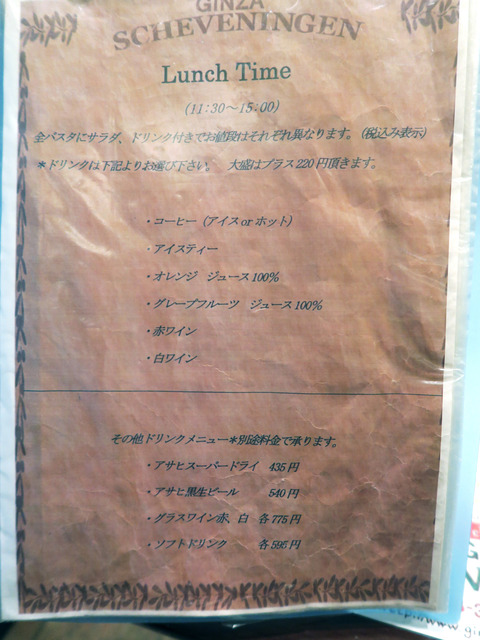 GINZA
SCHEVENINGEN
Lunch Time
(11:30～15:00)
全パスタにサラダ、ドリンク付きでお値段はそれぞれ異なります。（税込み表示）
＊ドリンクは下記よりお選び下さい。　大盛はプラス220円頂きます。
・コーヒー（アイス or ホット）
・アイスティー
・オレンジ　ジュース100％
・グレープフルーツ　ジュース100％
・赤ワイン
・白ワイン
その他ドリンクメニュー＊別途料金で承ります。
・アサヒスーパードライ　435円
・アサヒ黒生ビール　540円
・グラスワイン赤、白　各775円
・ソフトドリンク　各595円